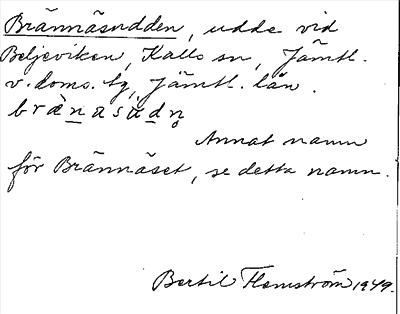 Brännäsudden, udde vid
Beljeviken, Kalls sn, Jämtl.
v. doms. tg, Jämtl. län.
Annat namn
för Brännäset, se detta namn.
Bertil Flemström 1949.